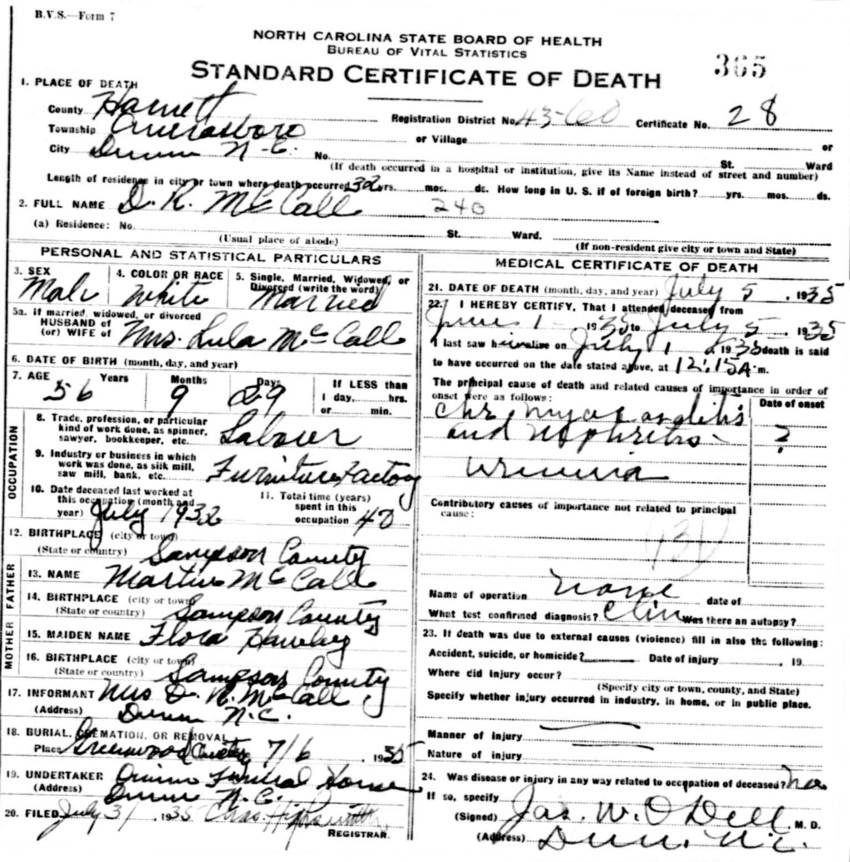 B.V.S.—Form 7
NORTH CAROLINA STATE BOARD OF HEALTH
BUREAU OF VITAL STATISTICS
STANDARD CERTIFICATE OF DEATH
365
1. PLACE OF DEATH
County Harnett Registration District No. 43-60 Certificate No. 28
Township Averasboro or Village or
City Dunn N.C. No. St. Ward
(If death occurred in a hospital or institution, give its Name instead of street and number)
Length of residence in city or town where death occurred 32 yrs. mos. ds. How long in U. S. if of foreign birth? yrs. mos. ds.
2. FULL NAME D. R. McCall 240
(a) Residence: No. St. Ward.
(Usual place of abode) (If non-resident give city or town and State)
PERSONAL AND STATISTICAL PARTICULARS
3. SEX 4. COLOR OR RACE 5. Single, Married, Widowed, or Divorced (write the word)
Male White Married
5a. If married, widowed, or divorced
HUSBAND of
(or) WIFE of Mrs. Lula McCall
6. DATE OF BIRTH (month, day, and year)
7. AGE Years Months Days If LESS than
56 9 29 1 day, hrs.
or min.
OCCUPATION
8. Trade, profession, or particular
kind of work done, as spinner,
sawyer, bookkeeper, etc. Labour
9. Industry or business in which
work was done, as silk mill,
saw mill, bank, etc. Furniture Factory
10. Date deceased last worked at
this occupation (month and
year) July 1932
11. Total time (years)
spent in this
occupation 40
12. BIRTHPLACE (city or town)
(State or country) Sampson County
FATHER
13. NAME Martin McCall
14. BIRTHPLACE (city or town)
(State or country) Sampson County
MOTHER
15. MAIDEN NAME Flora
16. BIRTHPLACE (city or town)
(State or country) Sampson County
17. INFORMANT Mrs D. R. McCall
(Address) Dunn N.C.
18. BURIAL, CREMATION, OR REMOVAL
Place Greenwood 7/6 1935
19. UNDERTAKER Funeral Home
(Address) Dunn N.C.
20. FILED July 31 1935 Chas.
REGISTRAR.
MEDICAL CERTIFICATE OF DEATH
21. DATE OF DEATH (month, day, and year) July 5, 1935
22. I HEREBY CERTIFY, That I attended deceased from
June 1 1935 to July 5, 1935
I last saw h alive on July 1 1935 death is said
to have occurred on the date stated above, at 12:15 A. m.
The principal cause of death and related causes of importance in order of
onset were as follows: Date of onset
Chr myocarditis
and nephritis- ?
Uremia
Contributory causes of importance not related to principal
cause:
(131)
Name of operation None date of
What test confirmed diagnosis? Clin Was there an autopsy?
23. If death was due to external causes (violence) fill in also the following:
Accident, suicide, or homicide? Date of injury , 19
Where did injury occur?
(Specify city or town, county, and State)
Specify whether injury occurred in industry, in home, or in public place.
Manner of injury
Nature of injury
24. Was disease or injury in any way related to occupation of deceased? no
If so, specify
(Signed) Jas. W. O'Dell M. D.
(Address) Dunn, N.C.